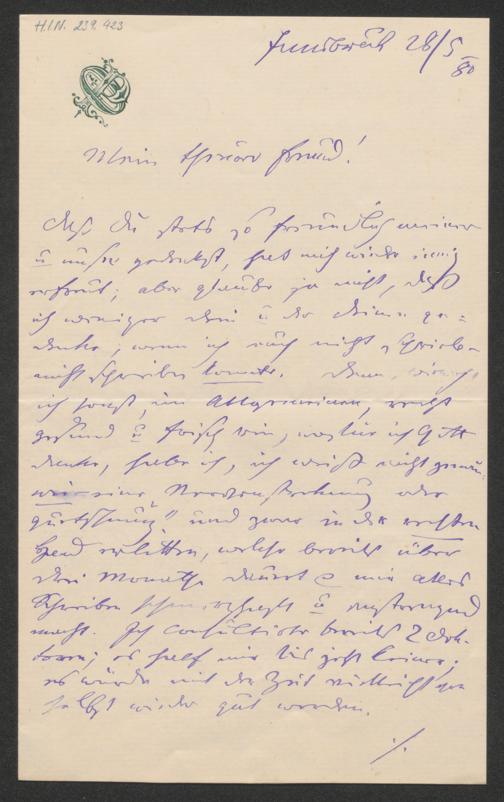 H.I.N. 239.423
Innsbruck 28/5
80
Mein theurer Freund!
Daß Du stets so freundlich meiner
u unser gedenkst, hat mich wieder innig
erfreut; aber glaube ja nicht, daß
ich weniger Dein u der Deinen ge=
denke, wenn ich auch nicht schrieb
nicht schreiben konnte. Denn,
ich sonst, im Allgemeinen, recht
gesund u frisch bin, wofür ich Gott
danke, habe ich, ich weiß nicht genau
wie eine Nervenstockung oder
und zwar in der rechten
Hand erlitten, welche bereits über
drei Monathe dauert u mir alles
Schreiben schmerzhaft u anstrengend
macht. Ich consultirte bereits 2 Dok-
toren; es half mir bis jetzt keiner;
es würde mit der Zeit vielleicht von
selbst wieder gut werden.
./.